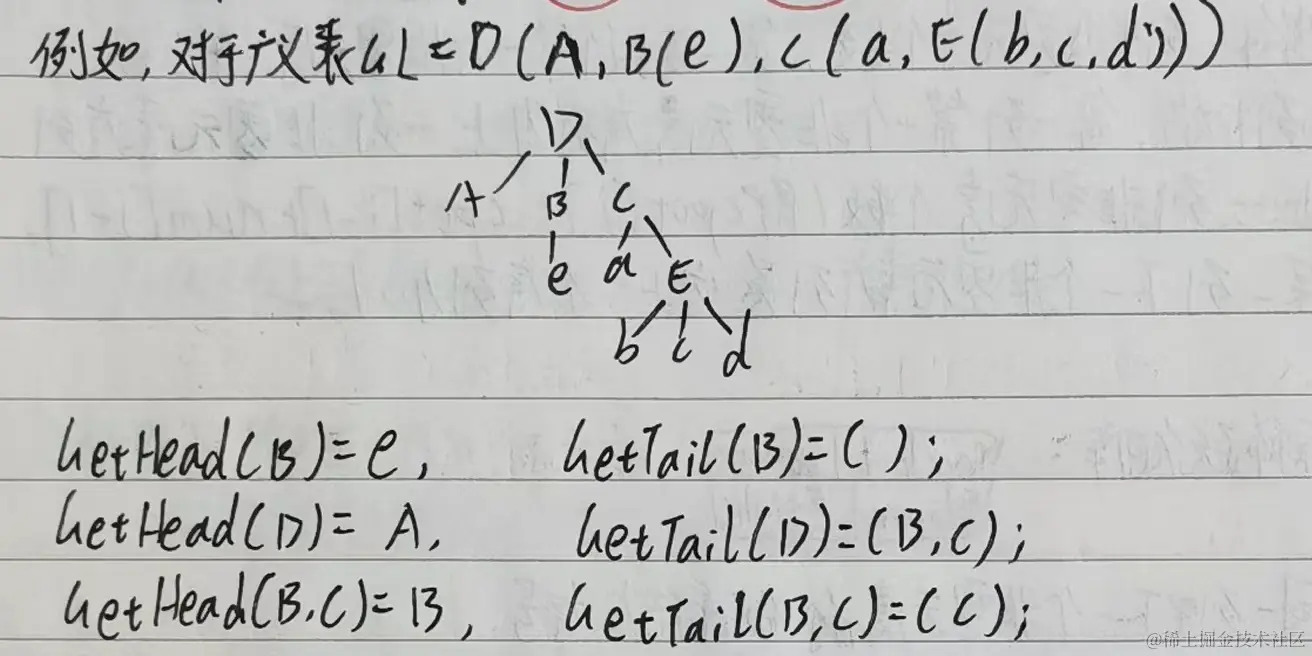 例如,对于广义表GL=D(A,B(e),C(a,E(b,c,d)))
D
A B C
e a E
b c d
GetHead(B)=e, GetTail(B)=( );
GetHead(D)=A, GetTail(D)=(B,C);
GetHead(B,C)=B, GetTail(B,C)=(C);
@稀土掘金技术社区